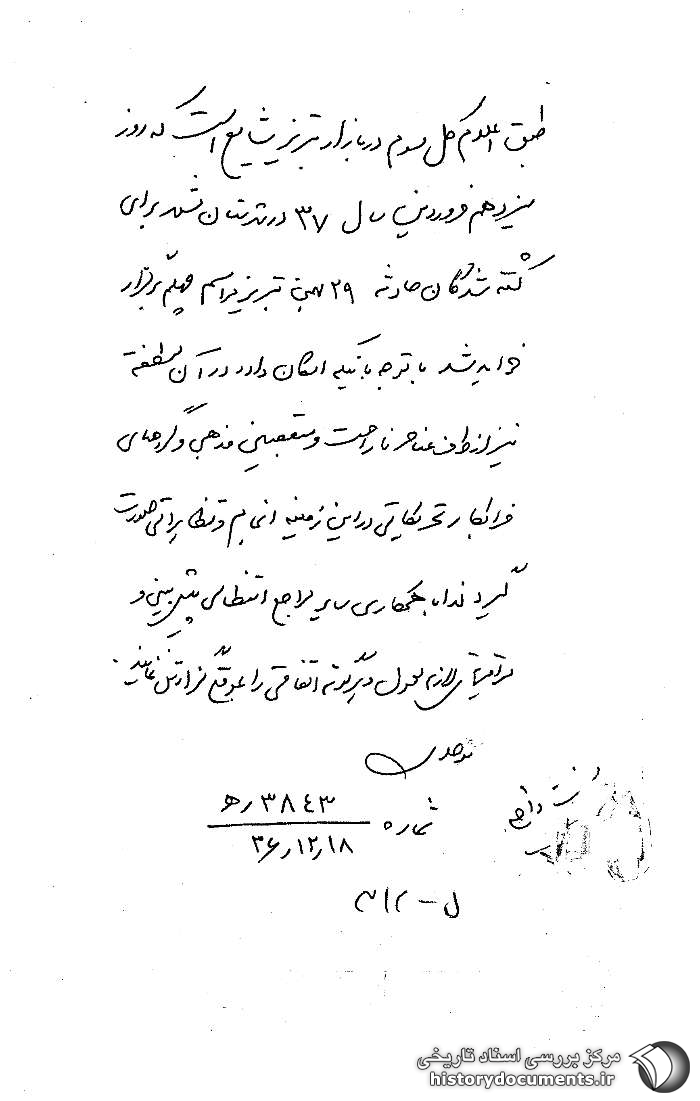 طبق اعلام کل سوم در بازار تبریز شایع است که روز
سیزدهم فروردین سال ۳۷ در قبرستان شهر برای
کشته شدگان حادثه ۲۹ بهمن تبریز مراسم چهلم برقرار
خواهد شد با توجه باینکه امکان دارد در آن منطقه
نیز از طرف عناصر ناراحت و متعصبین مذهبی و گروههای
خرابکار تحریکاتی در این زمینه انجام و تظاهراتی صورت
گیرد لذا با همکاری سایر مراجع انتظامی پیش بینی و
مراقبتهای لازم معمول و هرگونه اتفاقی را بموقع گزارش نمایند.
شماره ۳۸۴۳/ه
۳۶/۱۲/۱۸
ل - ۳۱۲
مرکز بررسی اسناد تاریخی
historydocuments.ir